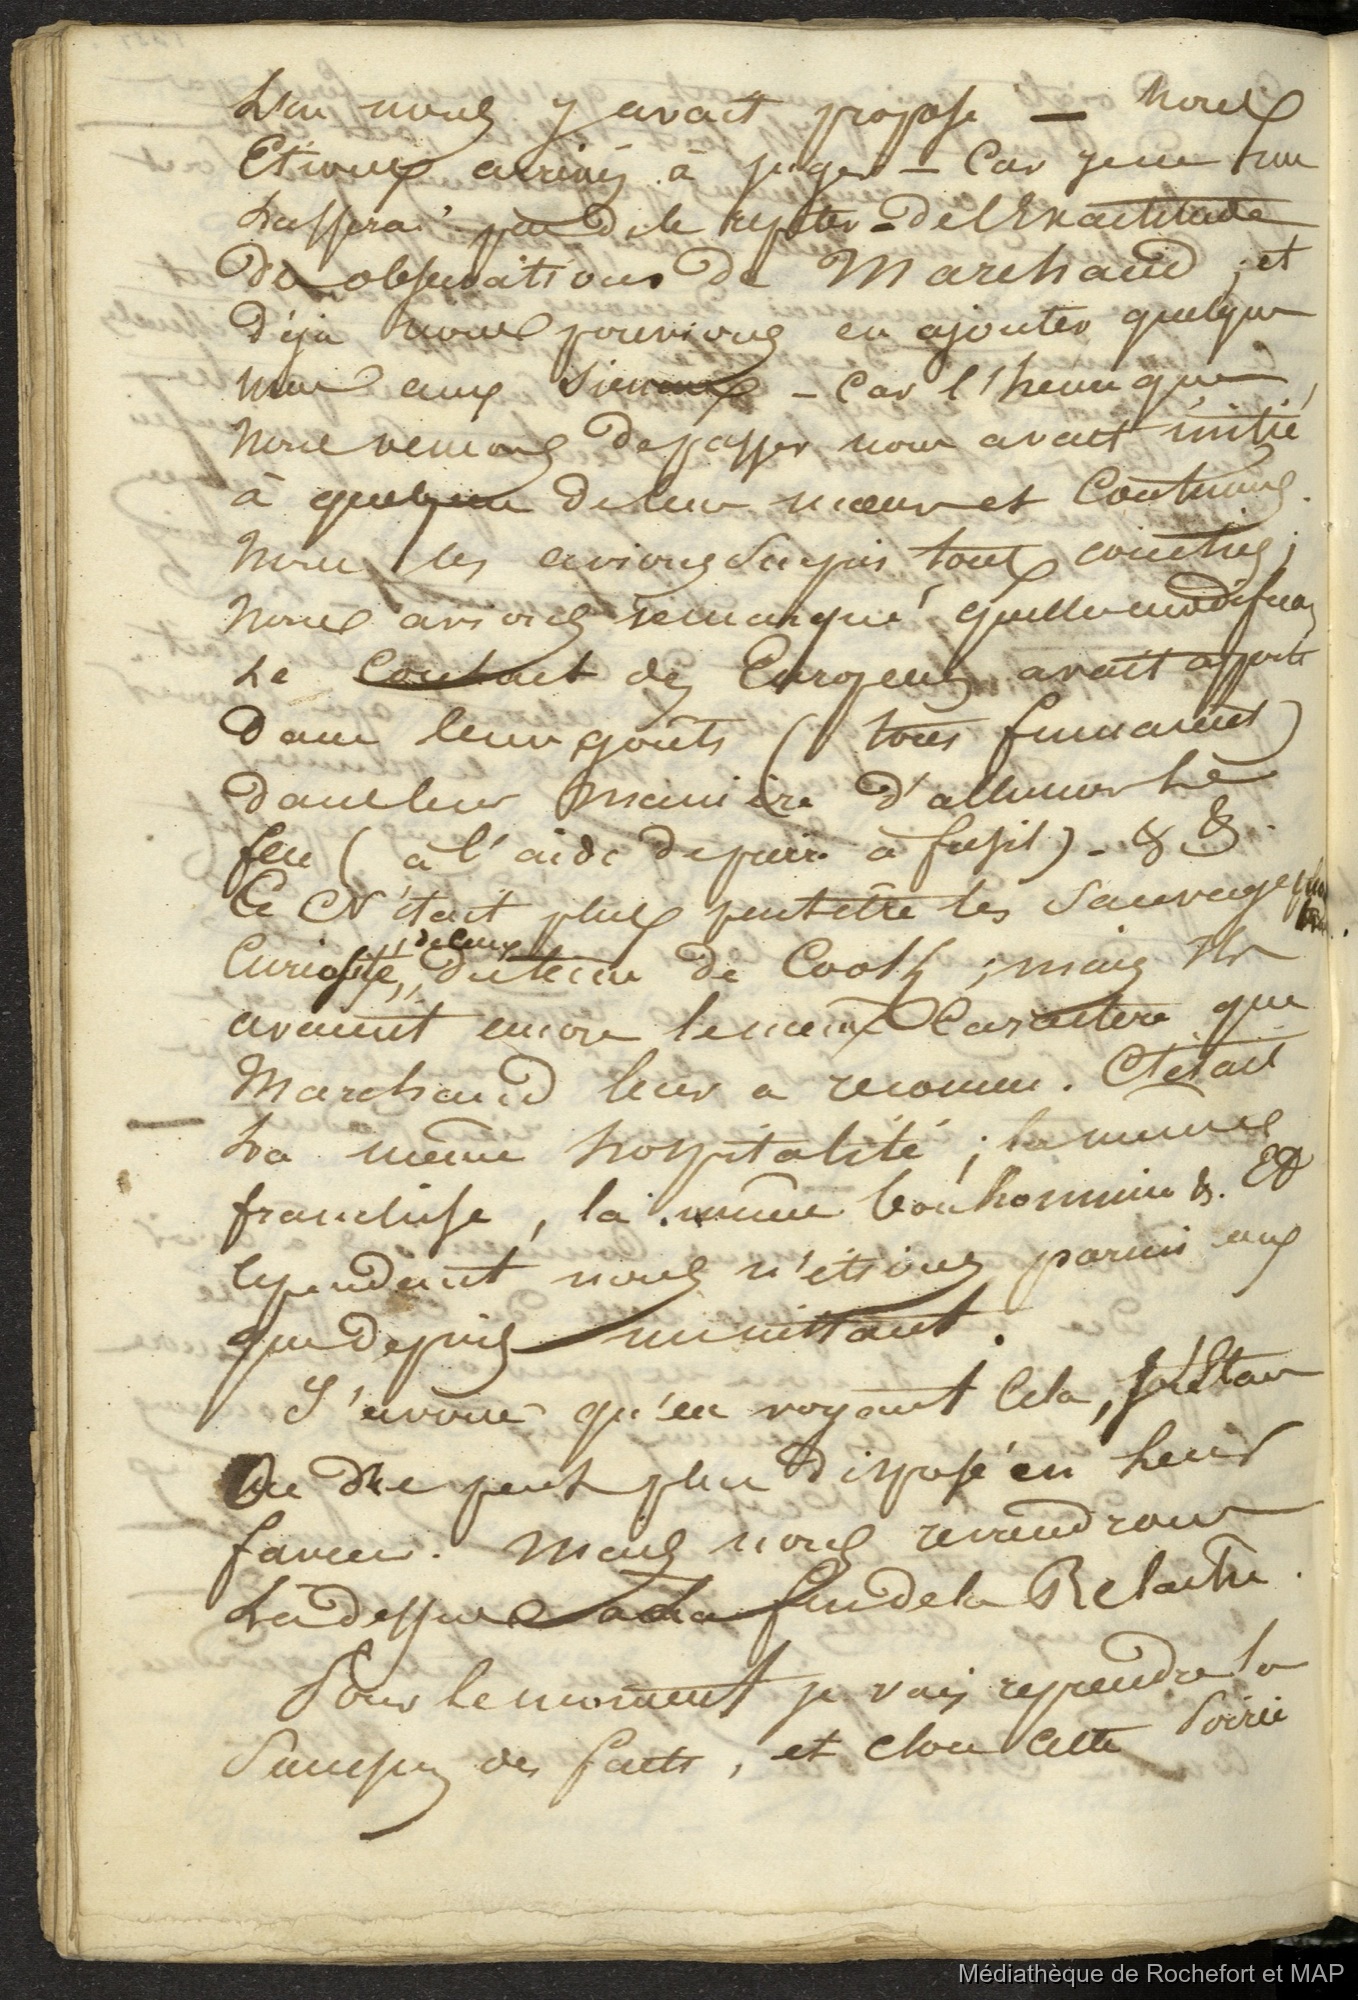 L'on nous y avait proposé — Nous
Etions arrivés à juger — Car je ne me
Lasserai pas de le repeter — de l'Exactitude
Des observations de Marchand ; et
Déja nous pouvions en ajouter quelques
unes aux siennes — Car l'heure que
Nous venions de passer nous avait initié
à quelques de leurs mœurs et Coutumes.
Nous les avions surpris tous couchés ;
Nous avions remarqué quelle modification
Le Contact des Européens avait apporté
Dans leurs goûts ( tous fumaient )
dans leur manière d'allumer Le
feu ( à l'aide de pierre à fusil ) — & &.
Ce N'était plus peutêtre les Sauvages plus
Curiosité, du tems de Cook ; mais Ils
avaient encore le même Caractère que
Marchand leur a reconnu. C'était
La même hospitalité ; la même
franchise, la même bonhommie &. Et
Cependant nous n'étions parmi eux
que depuis un instant.
J'avoue qu'en voyant Cela, J'Etais
On Ne peut plus disposé en Leur
faveur. Mais nous reviendrons
Là dessus à la fin de la Relache.
Pour le moment je vais reprendre la
des faits, et clore Cette Soirée
Médiathèque de Rochefort et MAP